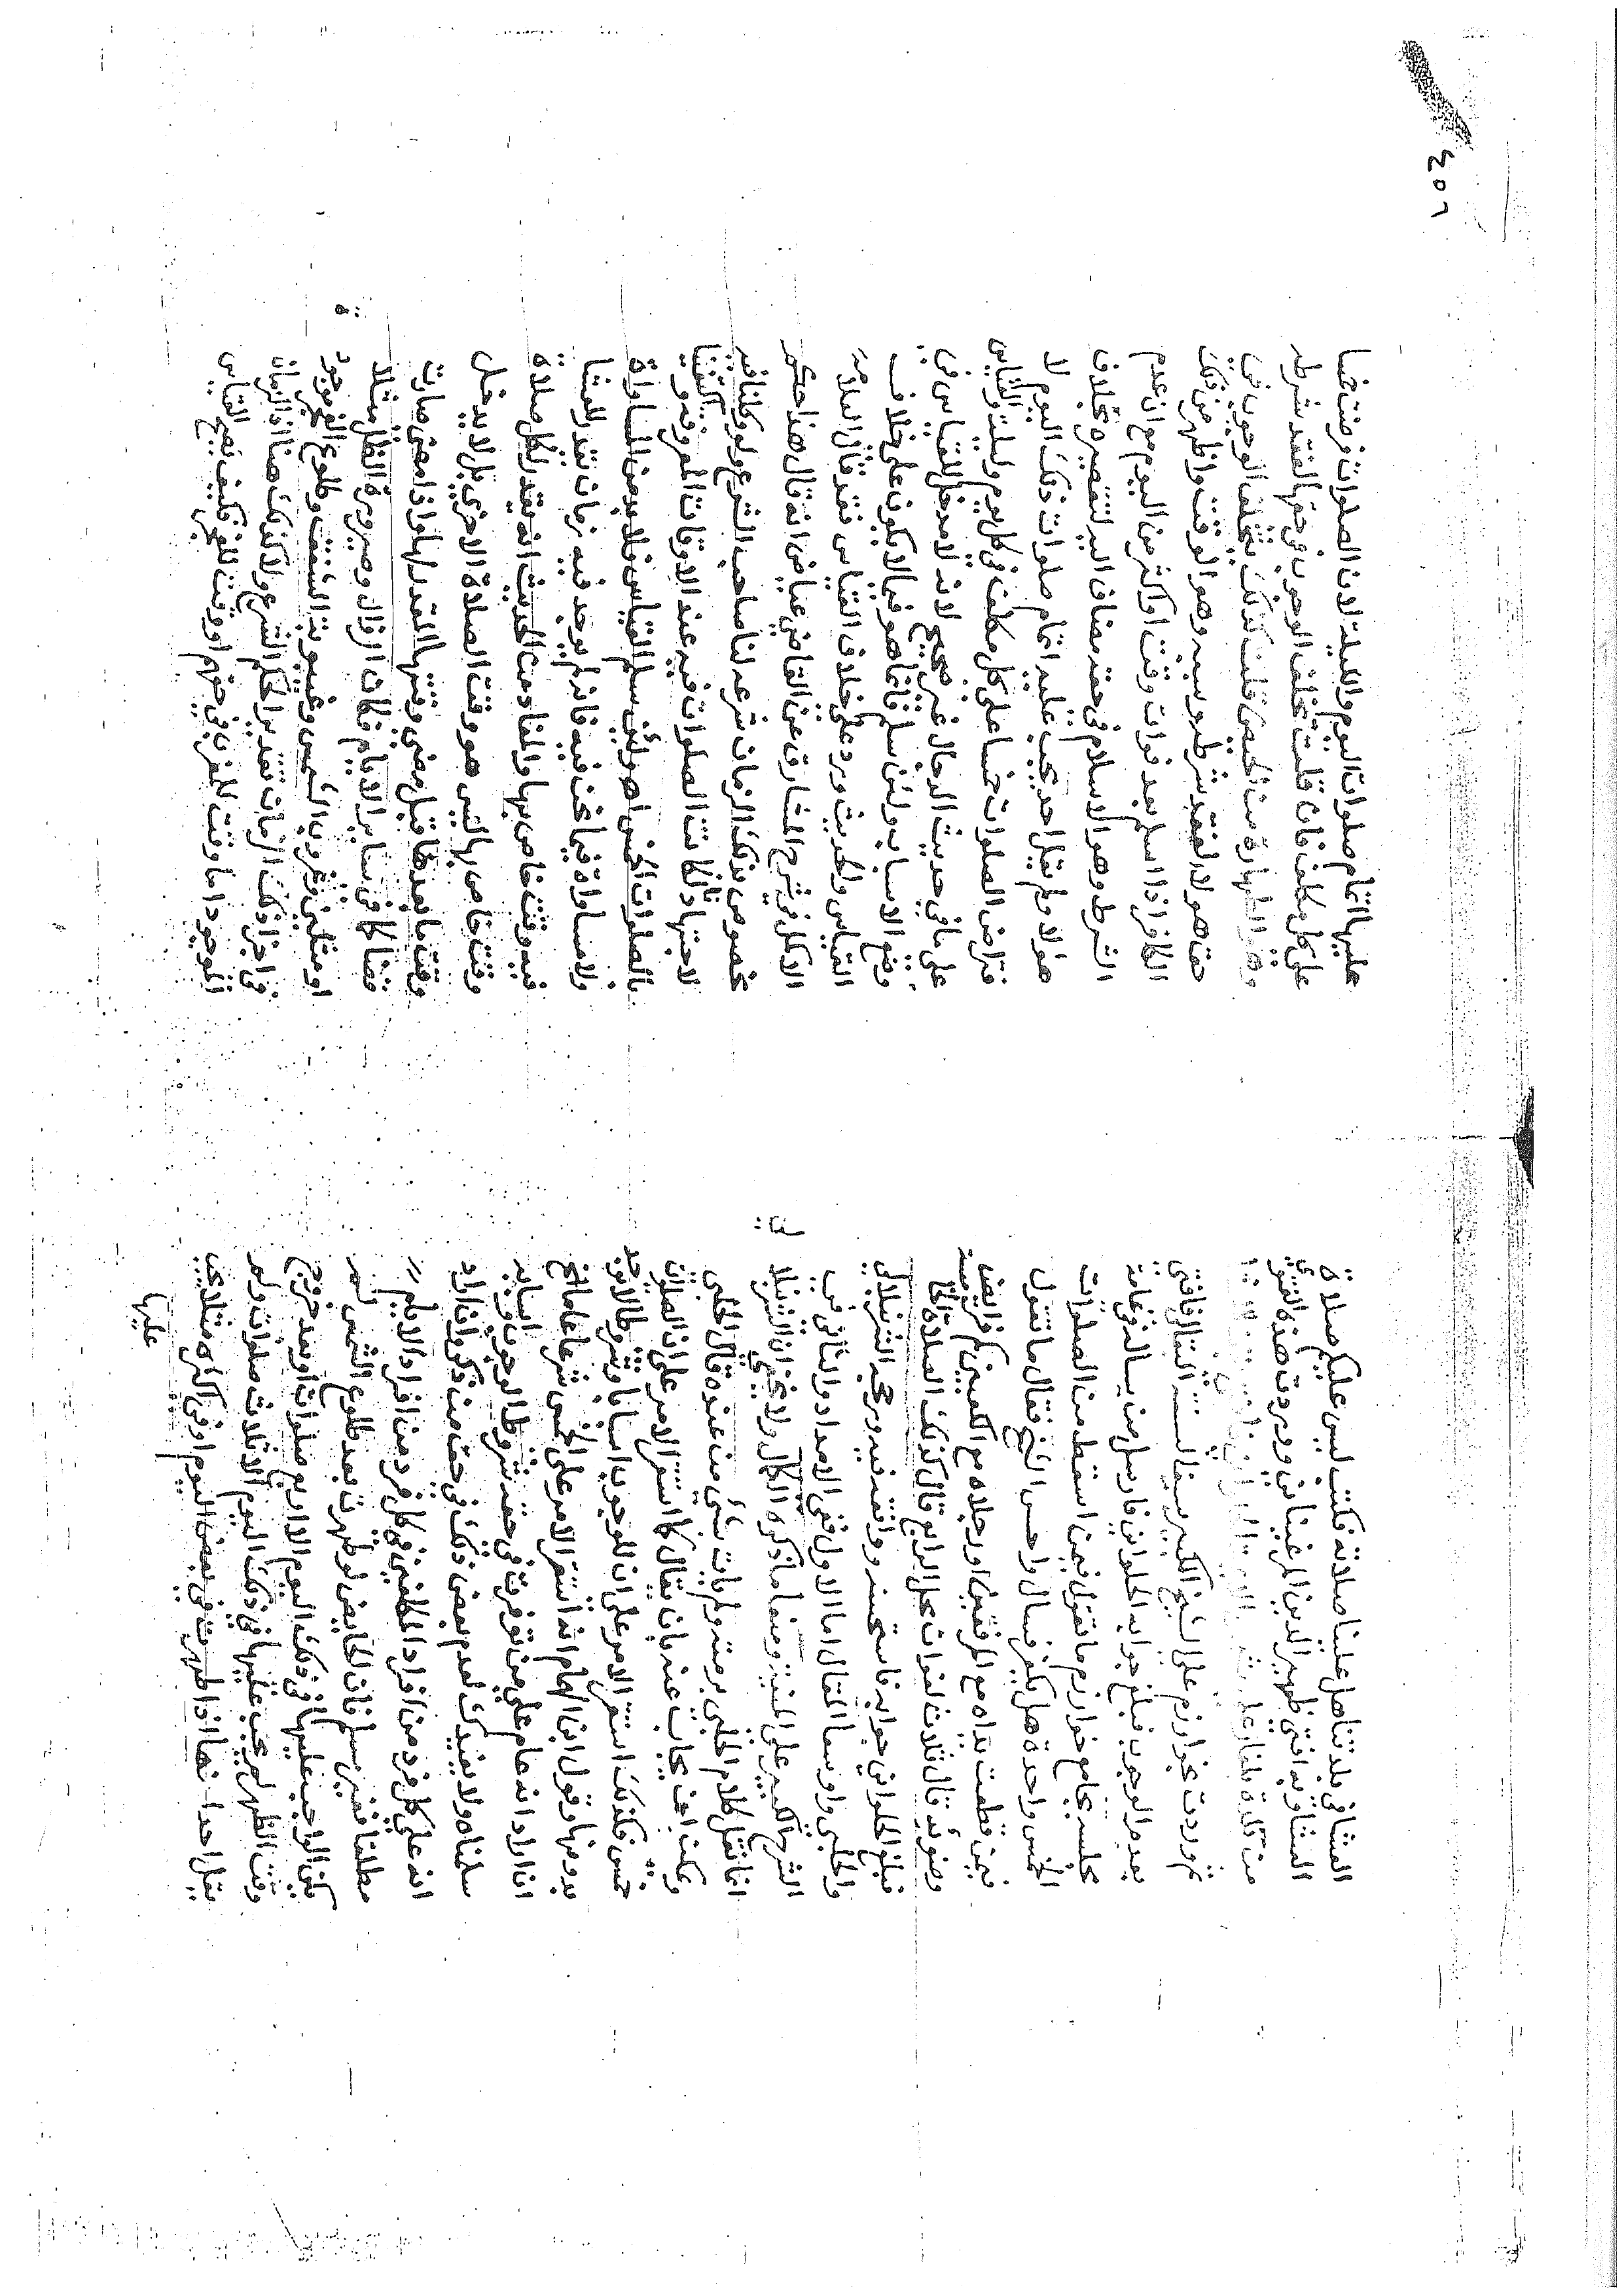 العشا في بلدتنا هل علينا صلاته فكتب ليس عليكم صلاة
العشا وبه افتى ظهير الدين المرغيناني ووردت هذه الفتوى
من بلدة بلغار على
ثم وردت بخوارزم على الشيخ الكبير سيف السنة البقالي فافتى
بعدم الوجوب فبلغ جوابه الحلواني فارسل من يساله في عامة
مجلسه بجامع خوارزم ما تقول فيمن اسقط من الصلوات
الخمس واحدة هل يكفر فسال واحس الشيخ فقال ما تقول
فيمن قطعت يداه مع المرفقين او رجلاه مع الكعبين كم فرايض
وضوئه قال ثلاث لفوات محل الرابع قال كذلك الصلاة
فبلغ الحلواني جوابه فاستحسنه ووافقه فيه ورجحه الشرنبلالي
والحلبي واوسعا المقال اما الاول ففي الامداد والثاني في
الشرح الكبير على المنية ومنعا ما ذكره الكمال ولا يخفى ان الشرنبلا
انما نقل كلام الحلبي برمته ولم يات بشئ من عنده قال الحلبي
ويمكن ايض يجاب عنه بان يقال كما استقر الامر على ان الصلوات
خمس فكذلك استقر الامر على ان للوجوب اسبابا وشروطا لا يوجد
بدونها وقول ابن الهمام انه استقر الامر على الخمس شرعا عاما الخ
ان اراد انه عام على من توفرت في حقه شروط الوجوب واسبابه
سلمناه ولا يفيدك لعدم بعض ذلك في حق من ذكر وان اراد
انه على كل فرد من افراد المكلفين في كل فرد من افراد الايام
مطلقا فغير مسلم فان الحايض لو طهرت بعد طلوع الشمس لم
يكن الواجب عليها في ذلك اليوم الا اربع صلوات او بعد خروج
وقت الظهر لم يجب عليها في ذلك اليوم الا ثلاث صلوات ولم
يقل احد انها اذا طهرت في بعض اليوم او في اكثره مثلا يجب
عليها
٤٥٦
عليها اتمام صلوات اليوم والليلة لان الصلوات فرضت خمسا
على كل مكلف فان قلت تخلف الوجوب في حقها لفقد شرطه
وهو الطهارة من الحيض قلت كذلك تخلف الوجوب في
حق هولا لفقد شرطه وسببه وهو الوقت واظهر من ذلك
الكافر اذا اسلم بعد فوات وقت او اكثر من اليوم مع ان عدم
الشرط وهو الاسلام في حقه مضاف اليه لتقصيره بخلاف
هولا ولم يقل احد يجب عليه اتمام صلوات ذلك اليوم لا
فتراض الصلوات خمسا على كل مكلف في كل يوم وليلة والقياس
على ما في حديث الدجال غير صحيح لانه لا مدخل للقياس في
وضع الاسباب ولئن سلم فانما هو فيما لا يكون على خلاف
القياس والحديث ورد على خلاف القياس فقد قال العلامة
الاكمل في شرح المشارق عن القاضي عياض انه قال هذا حكم
مخصوص بذلك الزمان شرعه لنا صاحب الشرع ولو وكلنا فيه
لاجتهادنا لكانت الصلوات فيه عند الاوقات المعروفة و اكتفينا
بالصلوات الخمس اهـ ولئن سلم القياس فلا بد من المساواة
ولا مساواة فيما نحن فيه فانه لم يوجد فيه زمان يقدر للعشا
فيه وقت خاص بها والمفاد من الحديث انه يقدر لكل صلاة
وقت خاص بها ليس هو وقت الصلاة الاخرى بل لا يدخل
وقت ما بعدها قبل مضي وقتها المقدر لها واذا مضى صارت
قضا كما في ساير الايام فكان الزوال وصيرورة الظل مثلا
او مثلين وغروب الشمس وغيبوبة الشفق وطلوع الفجر موجود
في اجزا ذلك الزمان تقديرا بحكم الشرع ولا كذلك هنا اذ الزمان
الموجود اما وقت للمغرب في حقهم او وقت للفجر فكيف يصح القياس